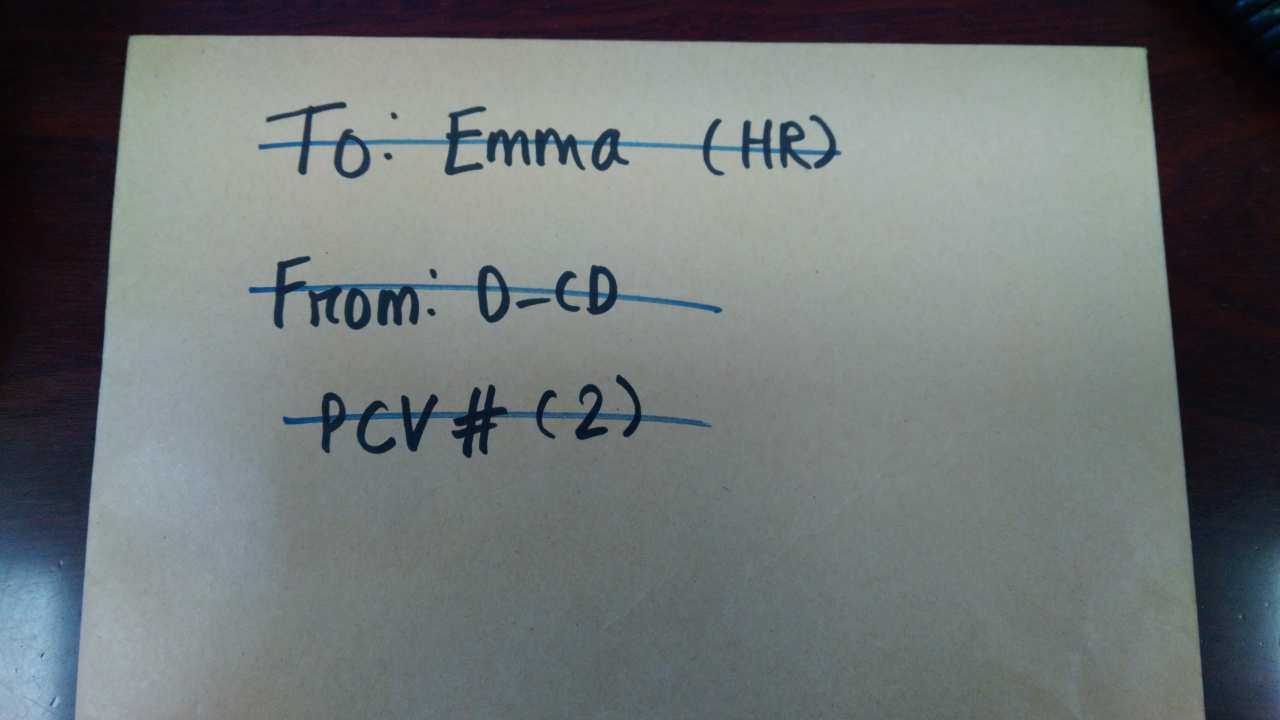 To: Emma (HR)
From: D-CD
PCV # (2)